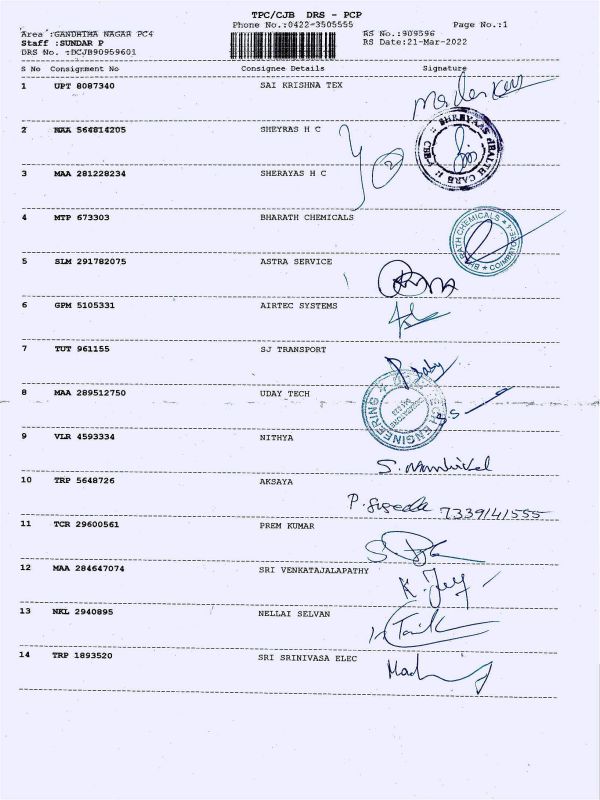 TPC/CJB DRS - PCP
Phone No.:0422-3505555 Page No.:1
Area :GANDHIMA NAGAR PC4 RS No.:909596
Staff :SUNDAR P RS Date:21-Mar-2022
DRS No. :DCJB90959601
S No Consignment No Consignee Details Signature
1 UPT 8087340 SAI KRISHNA TEX
2 MAA 564814205 SHEYRAS H C
SHREYAAS HEALTH CARE CBE
3 MAA 281228234 SHERAYAS H C
4 MTP 673303 BHARATH CHEMICALS
BHARATH CHEMICALS
5 SLM 291782075 ASTRA SERVICE
6 GPM 5105331 AIRTEC SYSTEMS
7 TUT 961155 SJ TRANSPORT
Baby
8 MAA 289512750 UDAY TECH
ENGINEERING
S.S
9 VLR 4593334 NITHYA
10 TRP 5648726 AKSAYA
7339141555
11 TCR 29600561 PREM KUMAR
12 MAA 284647074 SRI VENKATAJALAPATHY
13 NKL 2940895 NELLAI SELVAN
14 TRP 1893520 SRI SRINIVASA ELEC